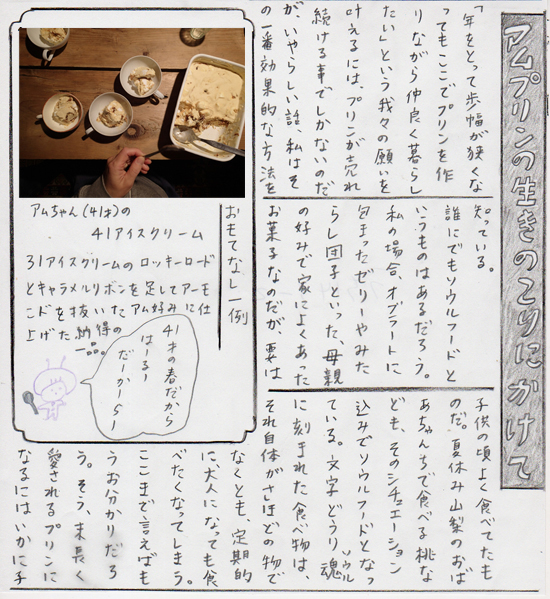 アムプリンの生きのこりにかけて
「年をとって歩幅が狭くな
ってもここでプリンを作
りながら仲良く暮らし
たい」という我々の願いを
叶えるには、プリンが売れ
続ける事でしかないのだ
が、いやらしい話、私はそ
の一番効果的な方法を
知っている。
誰にでもソウルフードと
いうものはあるだろう。
私の場合、オブラートに
包まったゼリーやみた
らし団子といった、母親
の好みで家によくあった
お菓子なのだが、要は
子供の頃よく食べてたも
のだ。夏休み山梨のおば
あちゃんちで食べる桃な
ども、そのシチュエーション
込みでソウルフードとなっ
ている。文字どうり魂
ソウル
に刻まれた食べ物は、
それ自体がさほどの物で
なくとも、定期的
に、大人になっても食
べたくなってしまう。
ここまで言えばも
うお分かりだろ
う。そう、末長く
愛されるプリンに
なるにはいかに子
おもてなし一例
アムちゃん(41才)の
41アイスクリーム
31アイスクリームのロッキーロード
とキャラメルリボンを足してアーモ
ンドを抜いたアム好みに仕
上げた納得の
一品。
41才の春だから
はーるー
だーかーらー